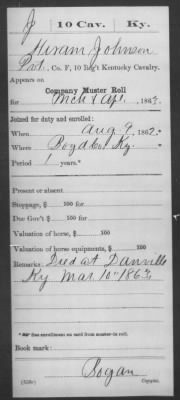 J | 10 Cav. | Ky.
Hiram Johnson
Pvt., Co. F, 10 Reg't Kentucky Cavalry.
Appears on
Company Muster Roll
for Mch & Apl, 1863.
Joined for duty and enrolled:
When Aug 9, 1862.*
Where Boyd Co. Ky. *
Period 1 years.*
Present or absent
Stoppage, $ 100 for
Due Gov't $ 100 for
Valuation of horse, $ 100
Valuation of horse equipments, $ 100
Remarks: Died at Danville
Ky Mar. 10" 1863
*See enrollment on card from muster-in roll.
Book mark:
Bogan
Copyist.